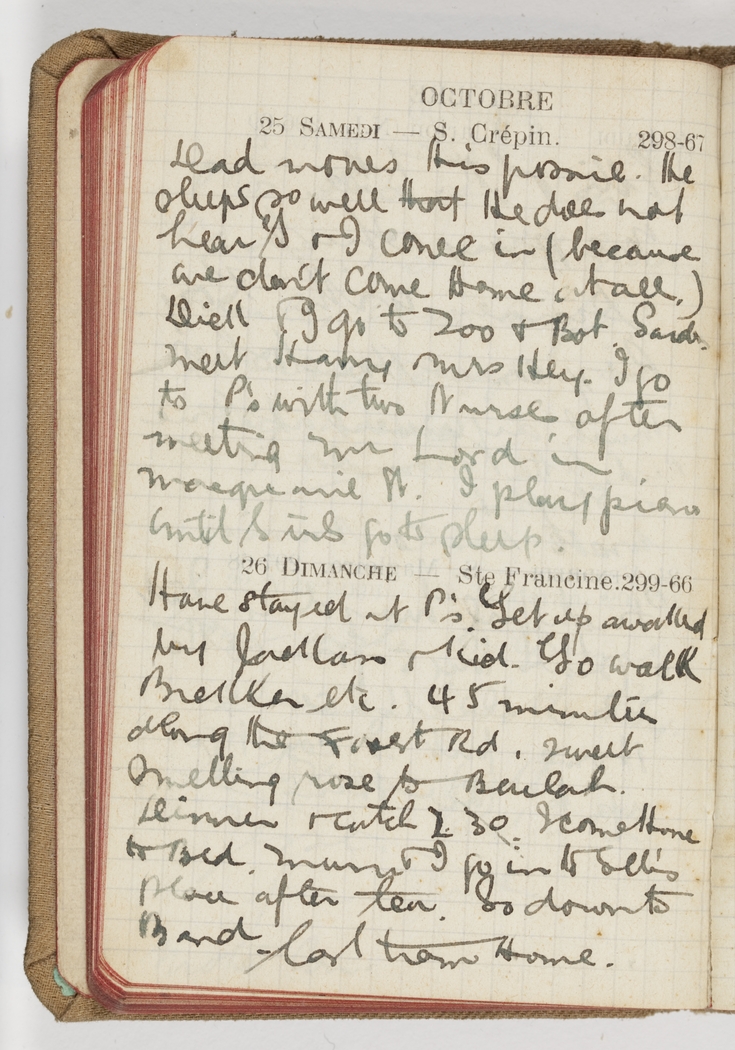 OCTOBRE
25 SAMEDI — S. Crépin. 298-67
Dad moves this possie. He
sleeps so well that He does not
hear & I come in (because
we don't come Home at all.)
I go to Zoo & Bot. Gards.
meet Harry Mrs Hey. I go
to P's with two Nurses after
meeting Mr Lord in
Macquarie St. I play piano
until go to sleep.
26 DIMANCHE — Ste Francine. 299-66
Have stayed at P's. Get up
by & kid. Go walk
Brekker etc. 45 minutes
along the Forest Rd. sweet
smelling rose to Beulah.
Dinner & catch 2.30. I come Home
to Bed. Mum & I go in to
place after tea. Go down to
Band - last tram Home.